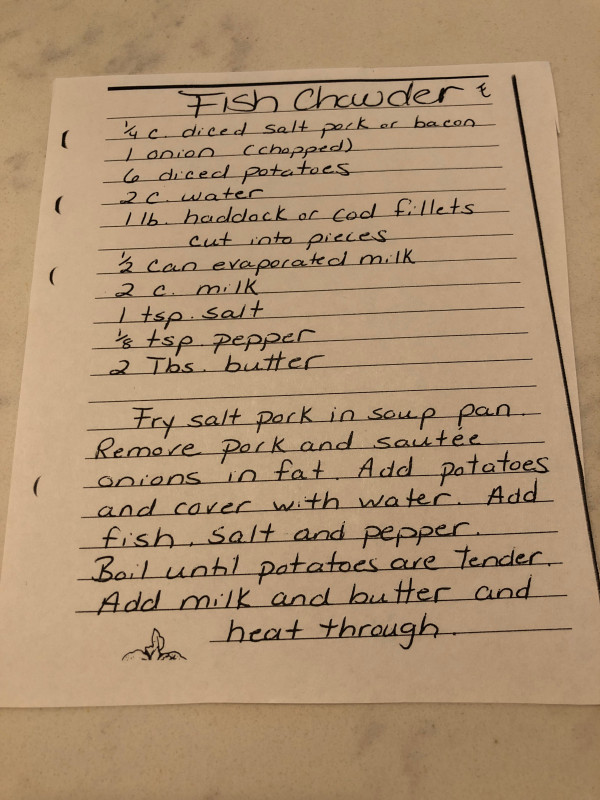 Fish Chowder
1/4 c. diced salt pork or bacon
1 onion (chopped)
6 diced potatoes
2 c. water
1 lb. haddock or cod fillets
cut into pieces
1/2 can evaporated milk
2 c. milk
1 tsp. salt
1/8 tsp. pepper
2 Tbs. butter
Fry salt pork in soup pan.
Remove pork and sautée
onions in fat. Add potatoes
and cover with water. Add
fish, salt and pepper.
Boil until potatoes are tender.
Add milk and butter and
heat through.